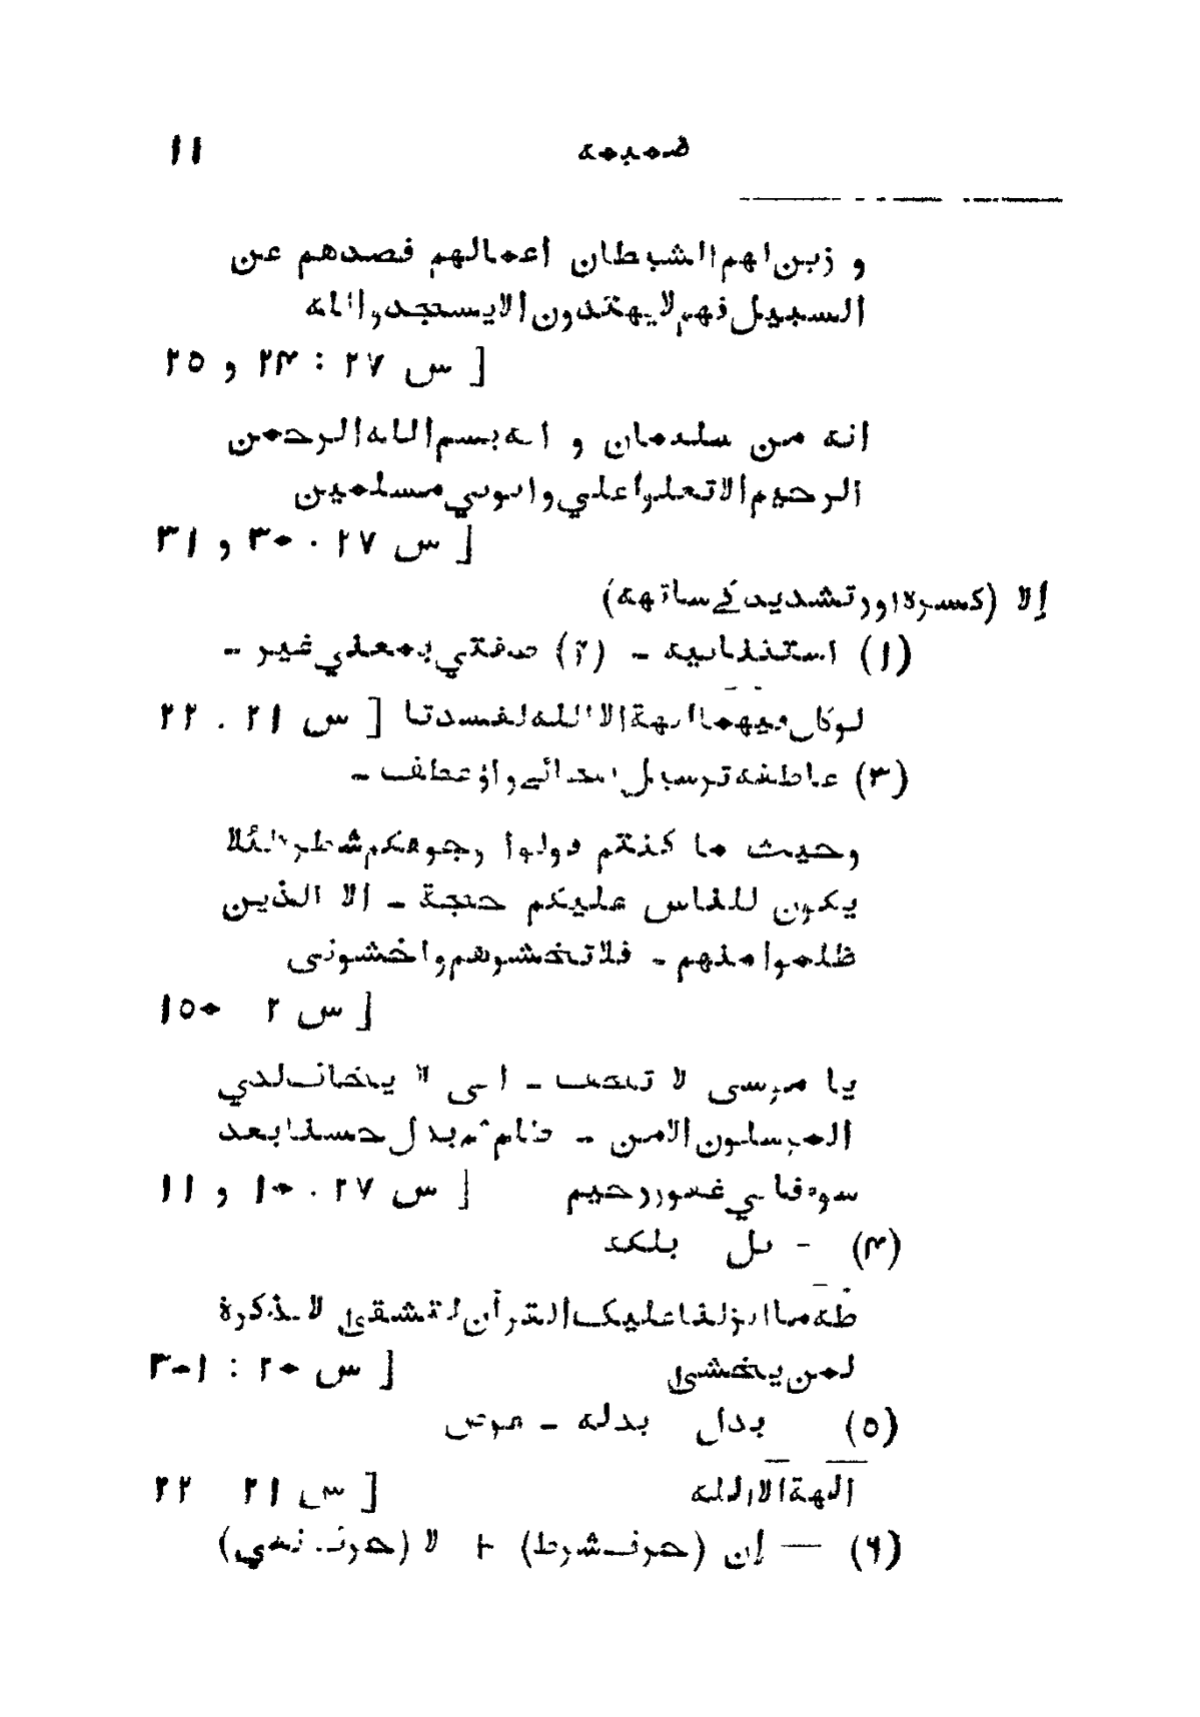 ضمیمه ۱۱
و زین لهم الشیطان اعمالهم فصدهم عن
السبیل فهم لا یهتدون الا یسجدوا لله
[ س ۲۷ : ۲۴ و ۲۵
انه من سلیمان و انه بسم الله الرحمن
الرحیم الا تعلوا علي واتوني مسلمین
[ س ۲۷ ۰ ۳۰ و ۳۱
إلا (کسره اور تشدید کے ساتهه)
(۱) استثنائیه - (۲) صفتي بمعني غیر -
لو کان فیهما آلهة الا الله لفسدتا [ س ۲۱ ۰ ۲۲
(۳) عاطفه واؤ عطف -
وحیث ما کنتم فولوا وجوهکم شطره لئلا
یکون للناس علیکم حجة - الا الذین
ظلموا منهم - فلا تخشوهم واخشونی
[ س ۲ ۱۵۰
یا موسی لا تخف - انی لا یخاف لدي
المرسلون الا من - ظلم ثم بدل حسنا بعد
سوء فاني غفور رحیم [ س ۲۷ ۰ ۱۰ و ۱۱
(۴) - بل بلکه
طٰهٰ ما انزلنا علیک القرآن لتشقیٰ الا تذکرة
لمن یخشیٰ [ س ۲۰ : ۱-۳
(۵) بدل بدله - عوض
آلهة الا الله [ س ۲۱ ۲۲
(۶) — إن (حرف شرط) + لا (حرف نفي)